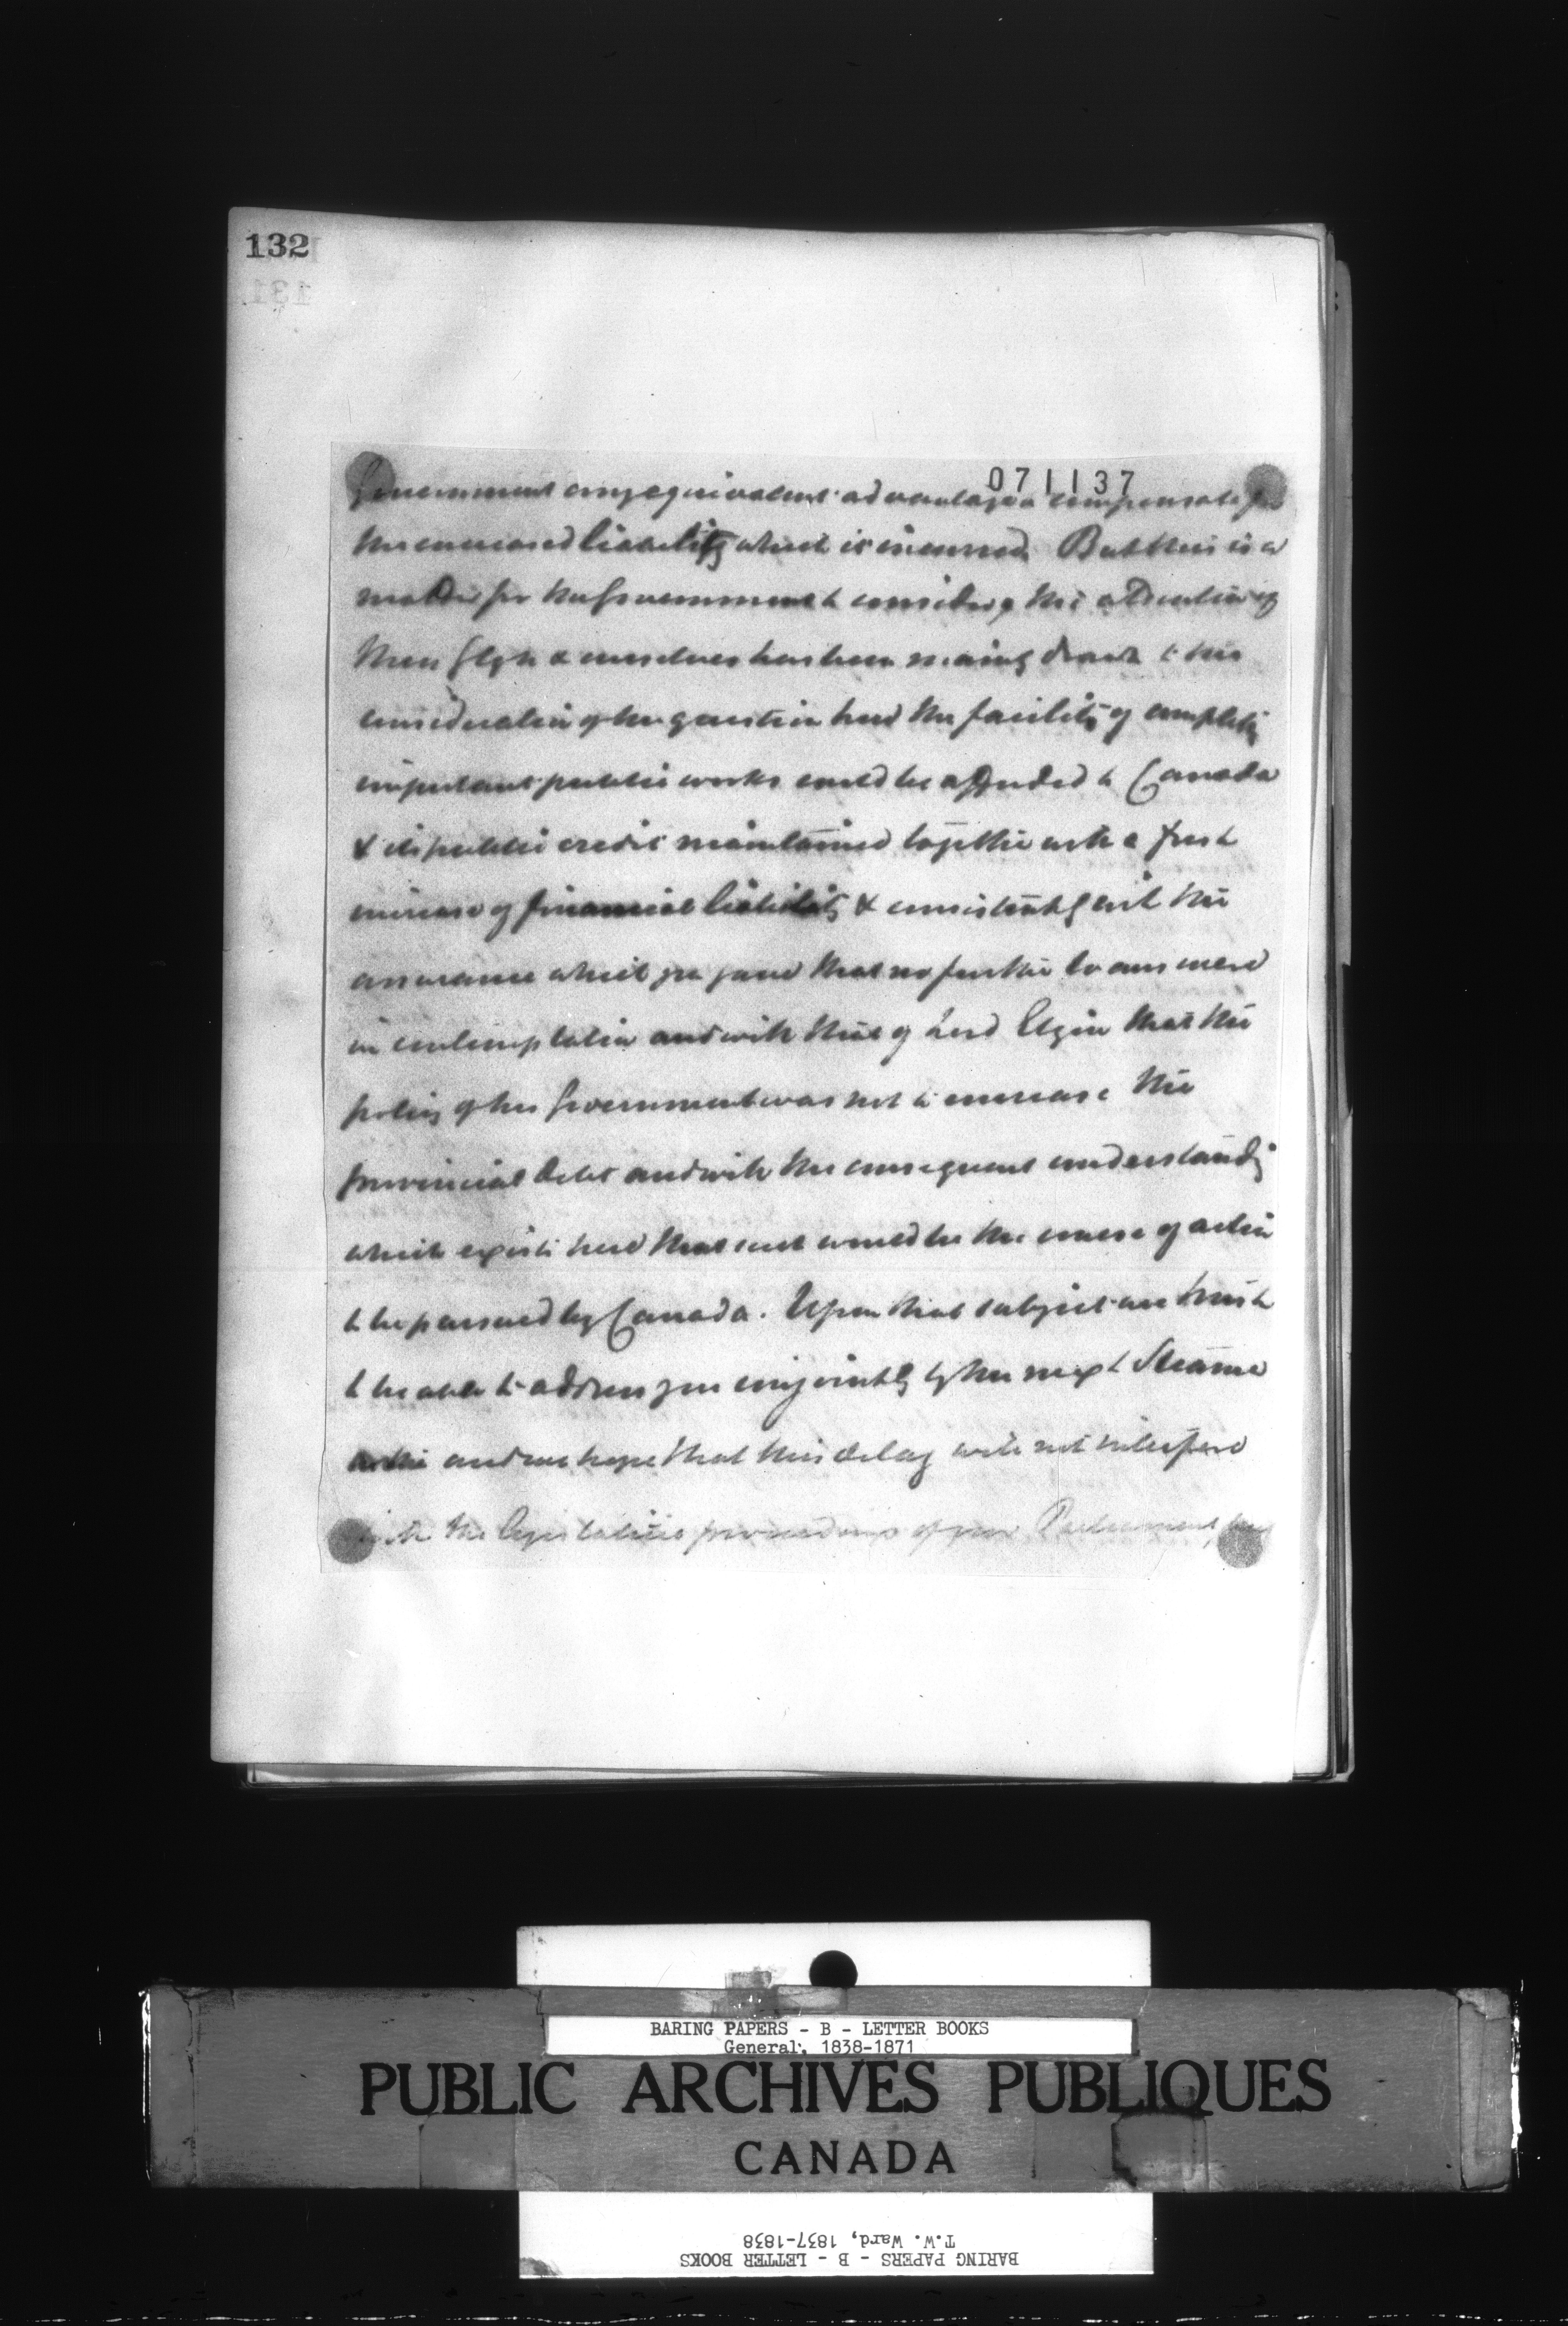 132
131
071137
Government any equivalent advantage to compensate for
the increased liability which is incurred. But this is a
matter for the Government to consider, the attention of
Messrs Glyn & ourselves has been mainly drawn to the
consideration of the question how the facility of completing
important public works could be afforded to Canada
& its public credit maintained together with a fresh
increase of financial liability & consistently with the
assurance which you gave that no further loans were
in contemplation and with that of Lord Elgin that the
policy of his Government was not to increase the
provincial debt and with the consequent understanding
which exists here that such would be the course of action
to be pursued by Canada. Upon that subject we trust
to be able to address you conjointly by the next Steamer
and we hope that this delay will not interfere
with the legislative proceedings of your Parliament,
BARING PAPERS - B - LETTER BOOKS
General, 1838-1871
PUBLIC ARCHIVES PUBLIQUES
CANADA
BARING PAPERS - B - LETTER BOOKS
T.W. Ward, 1837-1838